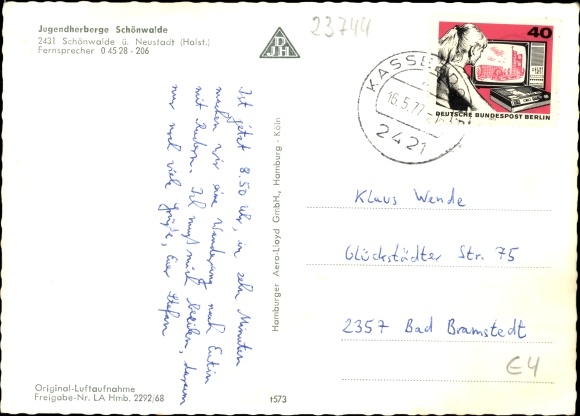 Jugendherberge Schönwalde
2431 Schönwalde ü. Neustadt (Holst.)
Fernsprecher 0 45 28 - 206
23744
DJH
40
DEUTSCHE BUNDESPOST BERLIN
16.5.77
2421
Ist jetzt 8.50 Uhr, in zehn Minuten
machen wir eine Wanderung nach Eutin
mit Rudern. Ich muß mich beeilen, darum
nur noch viele Grüße, Euer Stefan
Hamburger Aero-Lloyd GmbH., Hamburg - Köln
Klaus Wende
Glückstädter Str. 75
2357 Bad Bramstedt
€4
Original-Luftaufnahme
Freigabe-Nr. LA Hmb. 2292/68
t573